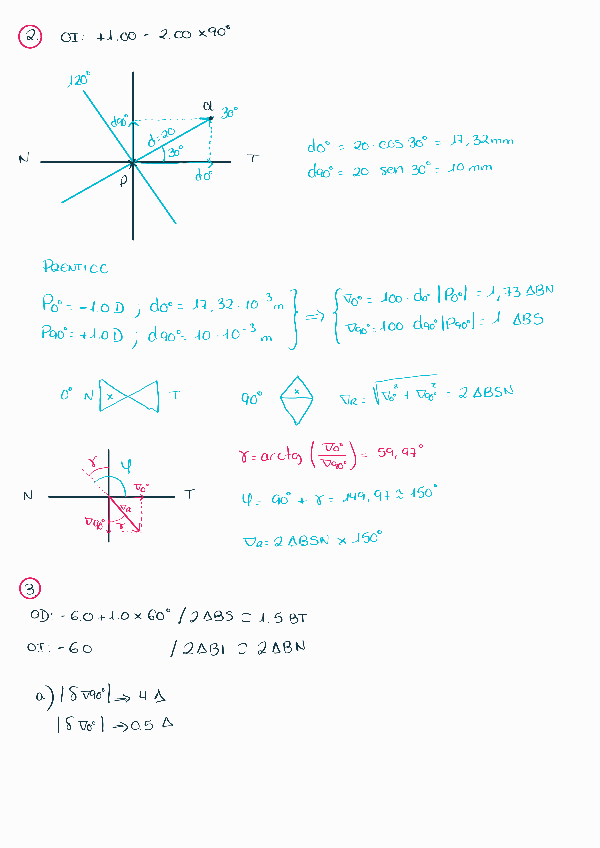 2. OI: +1.00 - 2.00 x 90°
120°
d90°
Q 30°
d=20
30°
N T
P d0°
d0° = 20·cos 30° = 17,32mm
d90° = 20 sen 30° = 10 mm
PRENTICE
P0° = -1.0 D ; d0° = 17,32·10⁻³ m
P90° = +1.0 D ; d90° = 10·10⁻³ m
=> ∇0° = 100·d0° |P0°| = 1,73 ΔBN
∇90° = 100 d90° |P90°| = 1 ΔBS
0° N x T
90° x
∇R = √∇0°² + ∇90°² = 2 ΔBSN
γ φ
∇0°
N T
∇a
∇90° γ
γ = arctg (∇0°/∇90°) = 59,97°
φ = 90° + γ = 149,97 ≈ 150°
∇a = 2 ΔBSN x 150°
3
OD: -6.0 +1.0 x 60° / 2 ΔBS ⊃ 1.5 BT
OI: -6.0 / 2 ΔBI ⊃ 2 ΔBN
a) |δ∇90°| → 4 Δ
|δ∇0°| → 0.5 Δ